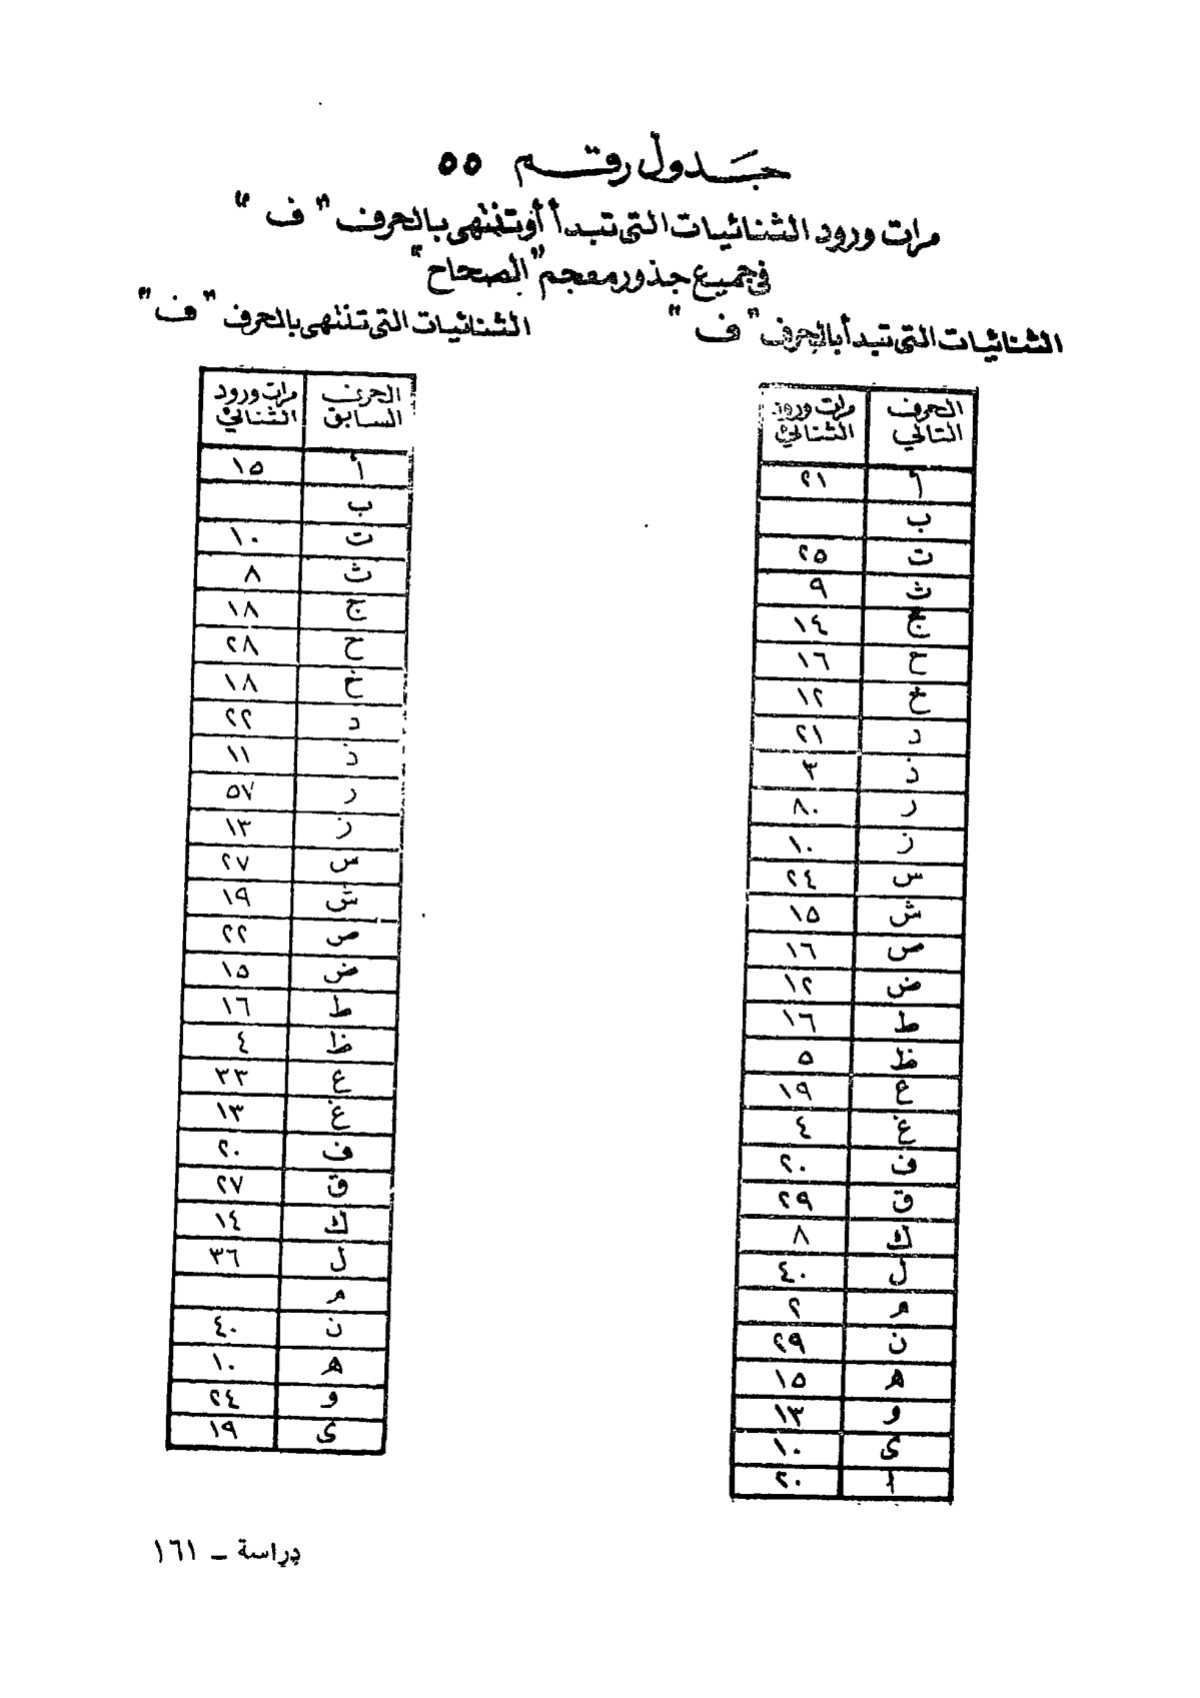 جدول رقم ٥٥
مرات ورود الثنائيات التى تبدأ أو تنتهى بالحرف "ف"
فى جميع جذور معجم "الصحاح"
الثنائيات التى تبدأ بالحرف "ف"
الحرف التالي مرات ورود الثنائي
أ ٢١
ب
ت ٢٥
ث ٩
ج ١٤
ح ١٦
خ ١٢
د ٢١
ذ ٣
ر ٨٠
ز ١٠
س ٢٤
ش ١٥
ص ١٦
ض ١٢
ط ١٦
ظ ٥
ع ١٩
غ ٤
ف ٢٠
ق ٢٩
ك ٨
ل ٤٠
م ٢
ن ٢٩
ه ١٥
و ١٣
ى ١٠
ا ٢٠
الثنائيات التى تنتهى بالحرف "ف"
الحرف السابق مرات ورود الثنائي
أ ١٥
ب
ت ١٠
ث ٨
ج ١٨
ح ٢٨
خ ١٨
د ٢٢
ذ ١١
ر ٥٧
ز ١٣
س ٢٧
ش ١٩
ص ٢٢
ض ١٥
ط ١٦
ظ ٤
ع ٣٣
غ ١٣
ف ٢٠
ق ٢٧
ك ١٤
ل ٣٦
م
ن ٤٠
ه ١٠
و ٢٤
ى ١٩
دراسة - ١٦١